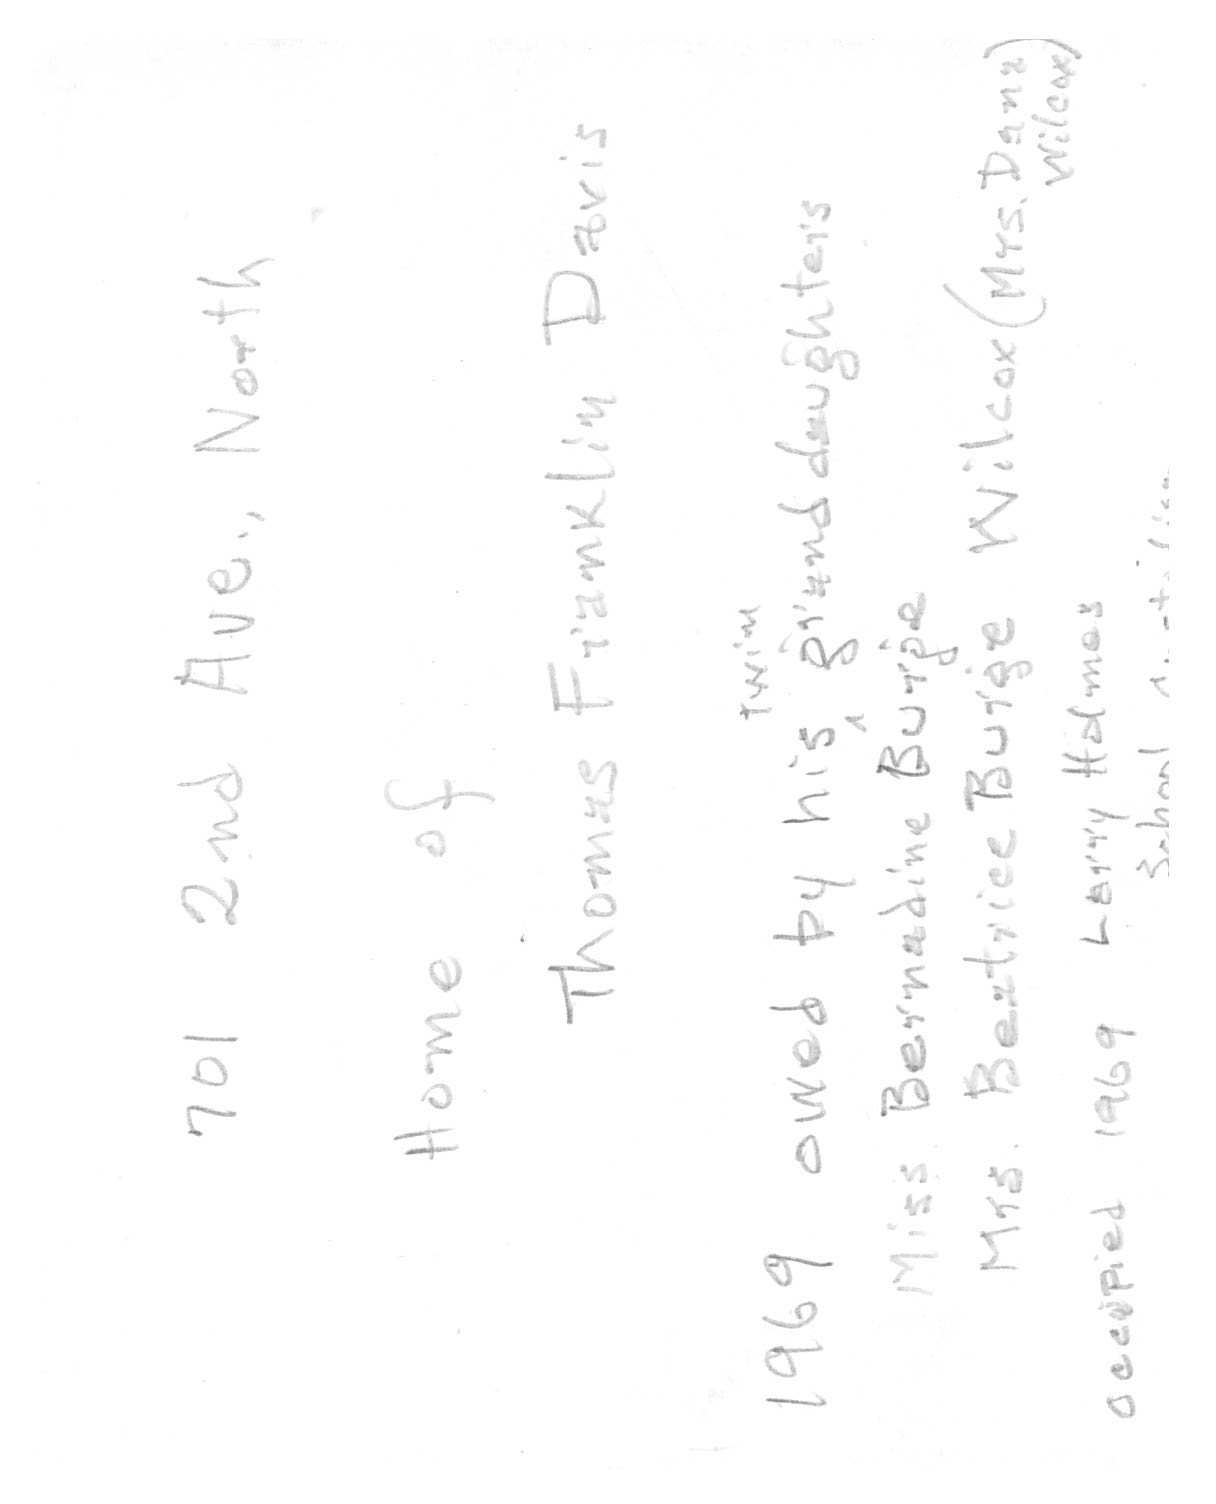 701 2nd Ave., North
Home of
Thomas Franklin Davis
1969 owed by his twin granddaughters
Miss Bernadine Burge
Mrs. Beatrice Burge Wilcox (Mrs. Dana Wilcox)
occupied 1969 Larry Holmes
School